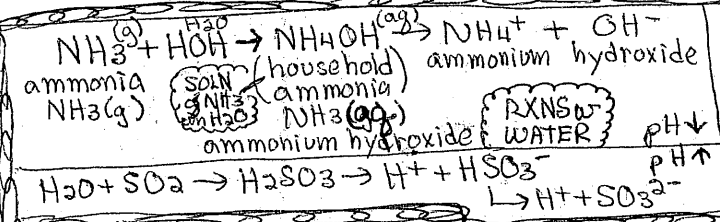 H2O
NH3(g) + HOH → NH4OH(aq) → NH4+ + OH-
ammonia
NH3(g)
SOLN
of NH3
in H2O
(household
ammonia)
NH3(aq)
ammonium hydroxide
ammonium hydroxide
RXNS w
WATER
pH↓
pH↑
H2O + SO2 → H2SO3 → H+ + HSO3-
↳ H+ + SO3 2-